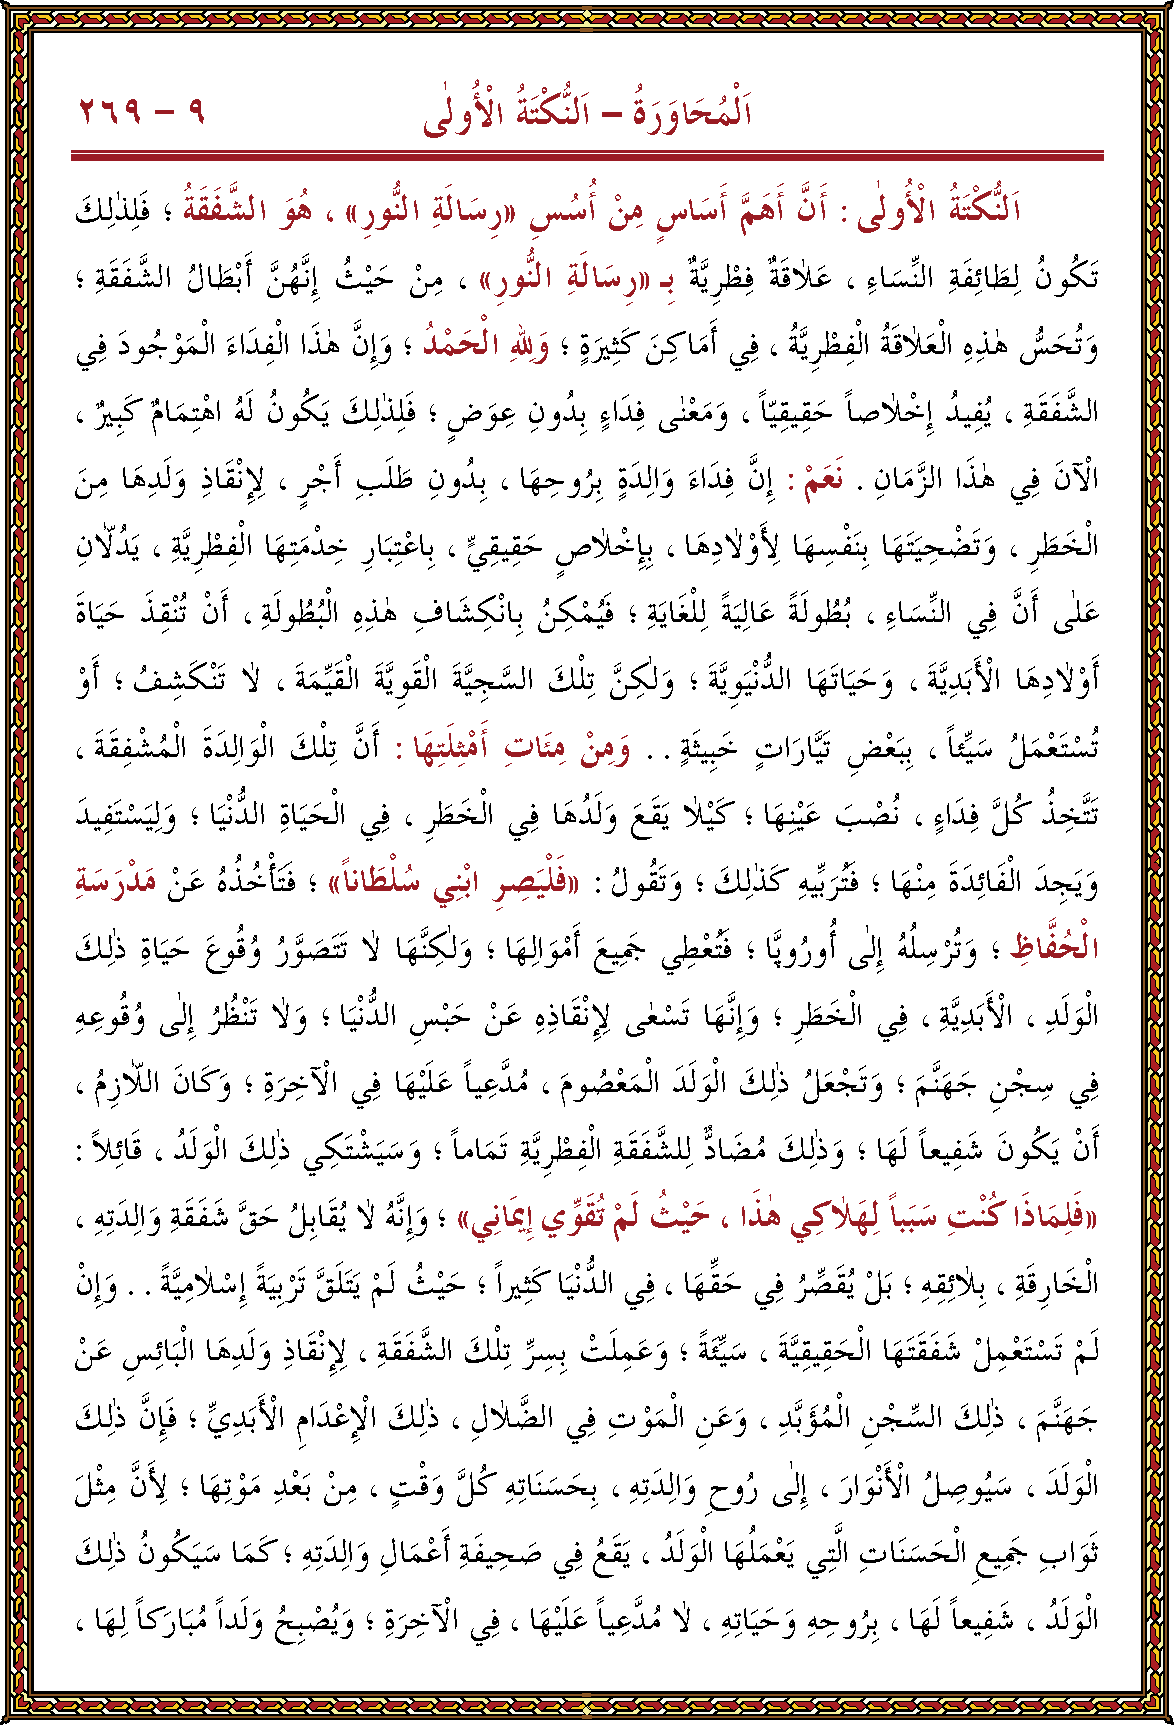 اَلْمُحَاوَرَةُ – اَلنُّكْتَةُ الْأُولٰى ٩ – ٢٦٩
اَلنُّكْتَةُ الْأُولٰى : أَنَّ أَهَمَّ أَسَاسٍ مِنْ أُسُسِ «رِسَالَةِ النُّورِ» ، هُوَ الشَّفَقَةُ ؛ فَلِذٰلِكَ
تَكُونُ لِطَائِفَةِ النِّسَاءِ ، عَلاٰقَةٌ فِطْرِيَّةٌ بِـ «رِسَالَةِ النُّورِ» ، مِنْ حَيْثُ إِنَّهُنَّ أَبْطَالُ الشَّفَقَةِ ؛
وَتُحَسُّ هٰذِهِ الْعَلاٰقَةُ الْفِطْرِيَّةُ ، فِي أَمَاكِنَ كَثِيرَةٍ ؛ وَلِلهِ الْحَمْدُ ؛ وَإِنَّ هٰذَا الْفِدَاءَ الْمَوْجُودَ فِي
الشَّفَقَةِ ، يُفِيدُ إِخْلاٰصاً حَقِيقِيّاً ، وَمَعْنٰى فِدَاءٍ بِدُونِ عِوَضٍ ؛ فَلِذٰلِكَ يَكُونُ لَهُ اهْتِمَامٌ كَبِيرٌ ،
الْآنَ فِي هٰذَا الزَّمَانِ . نَعَمْ : إِنَّ فِدَاءَ وَالِدَةٍ بِرُوحِهَا ، بِدُونِ طَلَبِ أَجْرٍ ، لِإِنْقَاذِ وَلَدِهَا مِنَ
الْخَطَرِ ، وَتَضْحِيَتَهَا بِنَفْسِهَا لِأَوْلاٰدِهَا ، بِإِخْلاٰصٍ حَقِيقِيٍّ ، بِاعْتِبَارِ خِدْمَتِهَا الْفِطْرِيَّةِ ، يَدُلاّٰنِ
عَلٰى أَنَّ فِي النِّسَاءِ ، بُطُولَةً عَالِيَةً لِلْغَايَةِ ؛ فَيُمْكِنُ بِانْكِشَافِ هٰذِهِ الْبُطُولَةِ ، أَنْ تُنْقِذَ حَيَاةَ
أَوْلاٰدِهَا الْأَبَدِيَّةَ ، وَحَيَاتَهَا الدُّنْيَوِيَّةَ ؛ وَلٰكِنَّ تِلْكَ السَّجِيَّةَ الْقَوِيَّةَ الْقَيِّمَةَ ، لاٰ تَنْكَشِفُ ؛ أَوْ
تُسْتَعْمَلُ سَيِّئاً ، بِبَعْضِ تَيَّارَاتٍ خَبِيثَةٍ . . وَمِنْ مِئَاتِ أَمْثِلَتِهَا : أَنَّ تِلْكَ الْوَالِدَةَ الْمُشْفِقَةَ ،
تَتَّخِذُ كُلَّ فِدَاءٍ ، نُصْبَ عَيْنِهَا ؛ كَيْلاٰ يَقَعَ وَلَدُهَا فِي الْخَطَرِ ، فِي الْحَيَاةِ الدُّنْيَا ؛ وَلِيَسْتَفِيدَ
وَيَجِدَ الْفَائِدَةَ مِنْهَا ؛ فَتُرَبِّيهِ كَذٰلِكَ ؛ وَتَقُولُ : «فَلْيَصِرِ ابْنِي سُلْطَاناً» ؛ فَتَأْخُذُهُ عَنْ مَدْرَسَةِ
الْحُفَّاظِ ؛ وَتُرْسِلُهُ إِلٰى أُورُوپَّا ؛ فَتُعْطِي جَمِيعَ أَمْوَالِهَا ؛ وَلٰكِنَّهَا لاٰ تَتَصَوَّرُ وُقُوعَ حَيَاةِ ذٰلِكَ
الْوَلَدِ ، الْأَبَدِيَّةِ ، فِي الْخَطَرِ ؛ وَإِنَّهَا تَسْعٰى لِإِنْقَاذِهِ عَنْ حَبْسِ الدُّنْيَا ؛ وَلاٰ تَنْظُرُ إِلٰى وُقُوعِهِ
فِي سِجْنِ جَهَنَّمَ ؛ وَتَجْعَلُ ذٰلِكَ الْوَلَدَ الْمَعْصُومَ ، مُدَّعِياً عَلَيْهَا فِي الْآخِرَةِ ؛ وَكَانَ اللاّٰزِمُ ،
أَنْ يَكُونَ شَفِيعاً لَهَا ؛ وَذٰلِكَ مُضَادٌّ لِلشَّفَقَةِ الْفِطْرِيَّةِ تَمَاماً ؛ وَسَيَشْتَكِي ذٰلِكَ الْوَلَدُ ، قَائِلاً :
«فَلِمَاذَا كُنْتِ سَبَباً لِهَلاٰكِي هٰذَا ، حَيْثُ لَمْ تُقَوِّي إِيمَانِي» ؛ وَإِنَّهُ لاٰ يُقَابِلُ حَقَّ شَفَقَةِ وَالِدَتِهِ ،
الْخَارِقَةِ ، بِلاٰئِقِهِ ؛ بَلْ يُقَصِّرُ فِي حَقِّهَا ، فِي الدُّنْيَا كَثِيراً ؛ حَيْثُ لَمْ يَتَلَقَّ تَرْبِيَةً إِسْلاٰمِيَّةً . . وَإِنْ
لَمْ تَسْتَعْمِلْ شَفَقَتَهَا الْحَقِيقِيَّةَ ، سَيِّئَةً ؛ وَعَمِلَتْ بِسِرِّ تِلْكَ الشَّفَقَةِ ، لِإِنْقَاذِ وَلَدِهَا الْبَائِسِ عَنْ
جَهَنَّمَ ، ذٰلِكَ السِّجْنِ الْمُؤَبَّدِ ، وَعَنِ الْمَوْتِ فِي الضَّلاٰلِ ، ذٰلِكَ الْإِعْدَامِ الْأَبَدِيِّ ؛ فَإِنَّ ذٰلِكَ
الْوَلَدَ ، سَيُوصِلُ الْأَنْوَارَ ، إِلٰى رُوحِ وَالِدَتِهِ ، بِحَسَنَاتِهِ كُلَّ وَقْتٍ ، مِنْ بَعْدِ مَوْتِهَا ؛ لِأَنَّ مِثْلَ
ثَوَابِ جَمِيعِ الْحَسَنَاتِ الَّتِي يَعْمَلُهَا الْوَلَدُ ، يَقَعُ فِي صَحِيفَةِ أَعْمَالِ وَالِدَتِهِ ؛ كَمَا سَيَكُونُ ذٰلِكَ
الْوَلَدُ ، شَفِيعاً لَهَا ، بِرُوحِهِ وَحَيَاتِهِ ، لاٰ مُدَّعِياً عَلَيْهَا ، فِي الْآخِرَةِ ؛ وَيُصْبِحُ وَلَداً مُبَارَكاً لِهَا ،